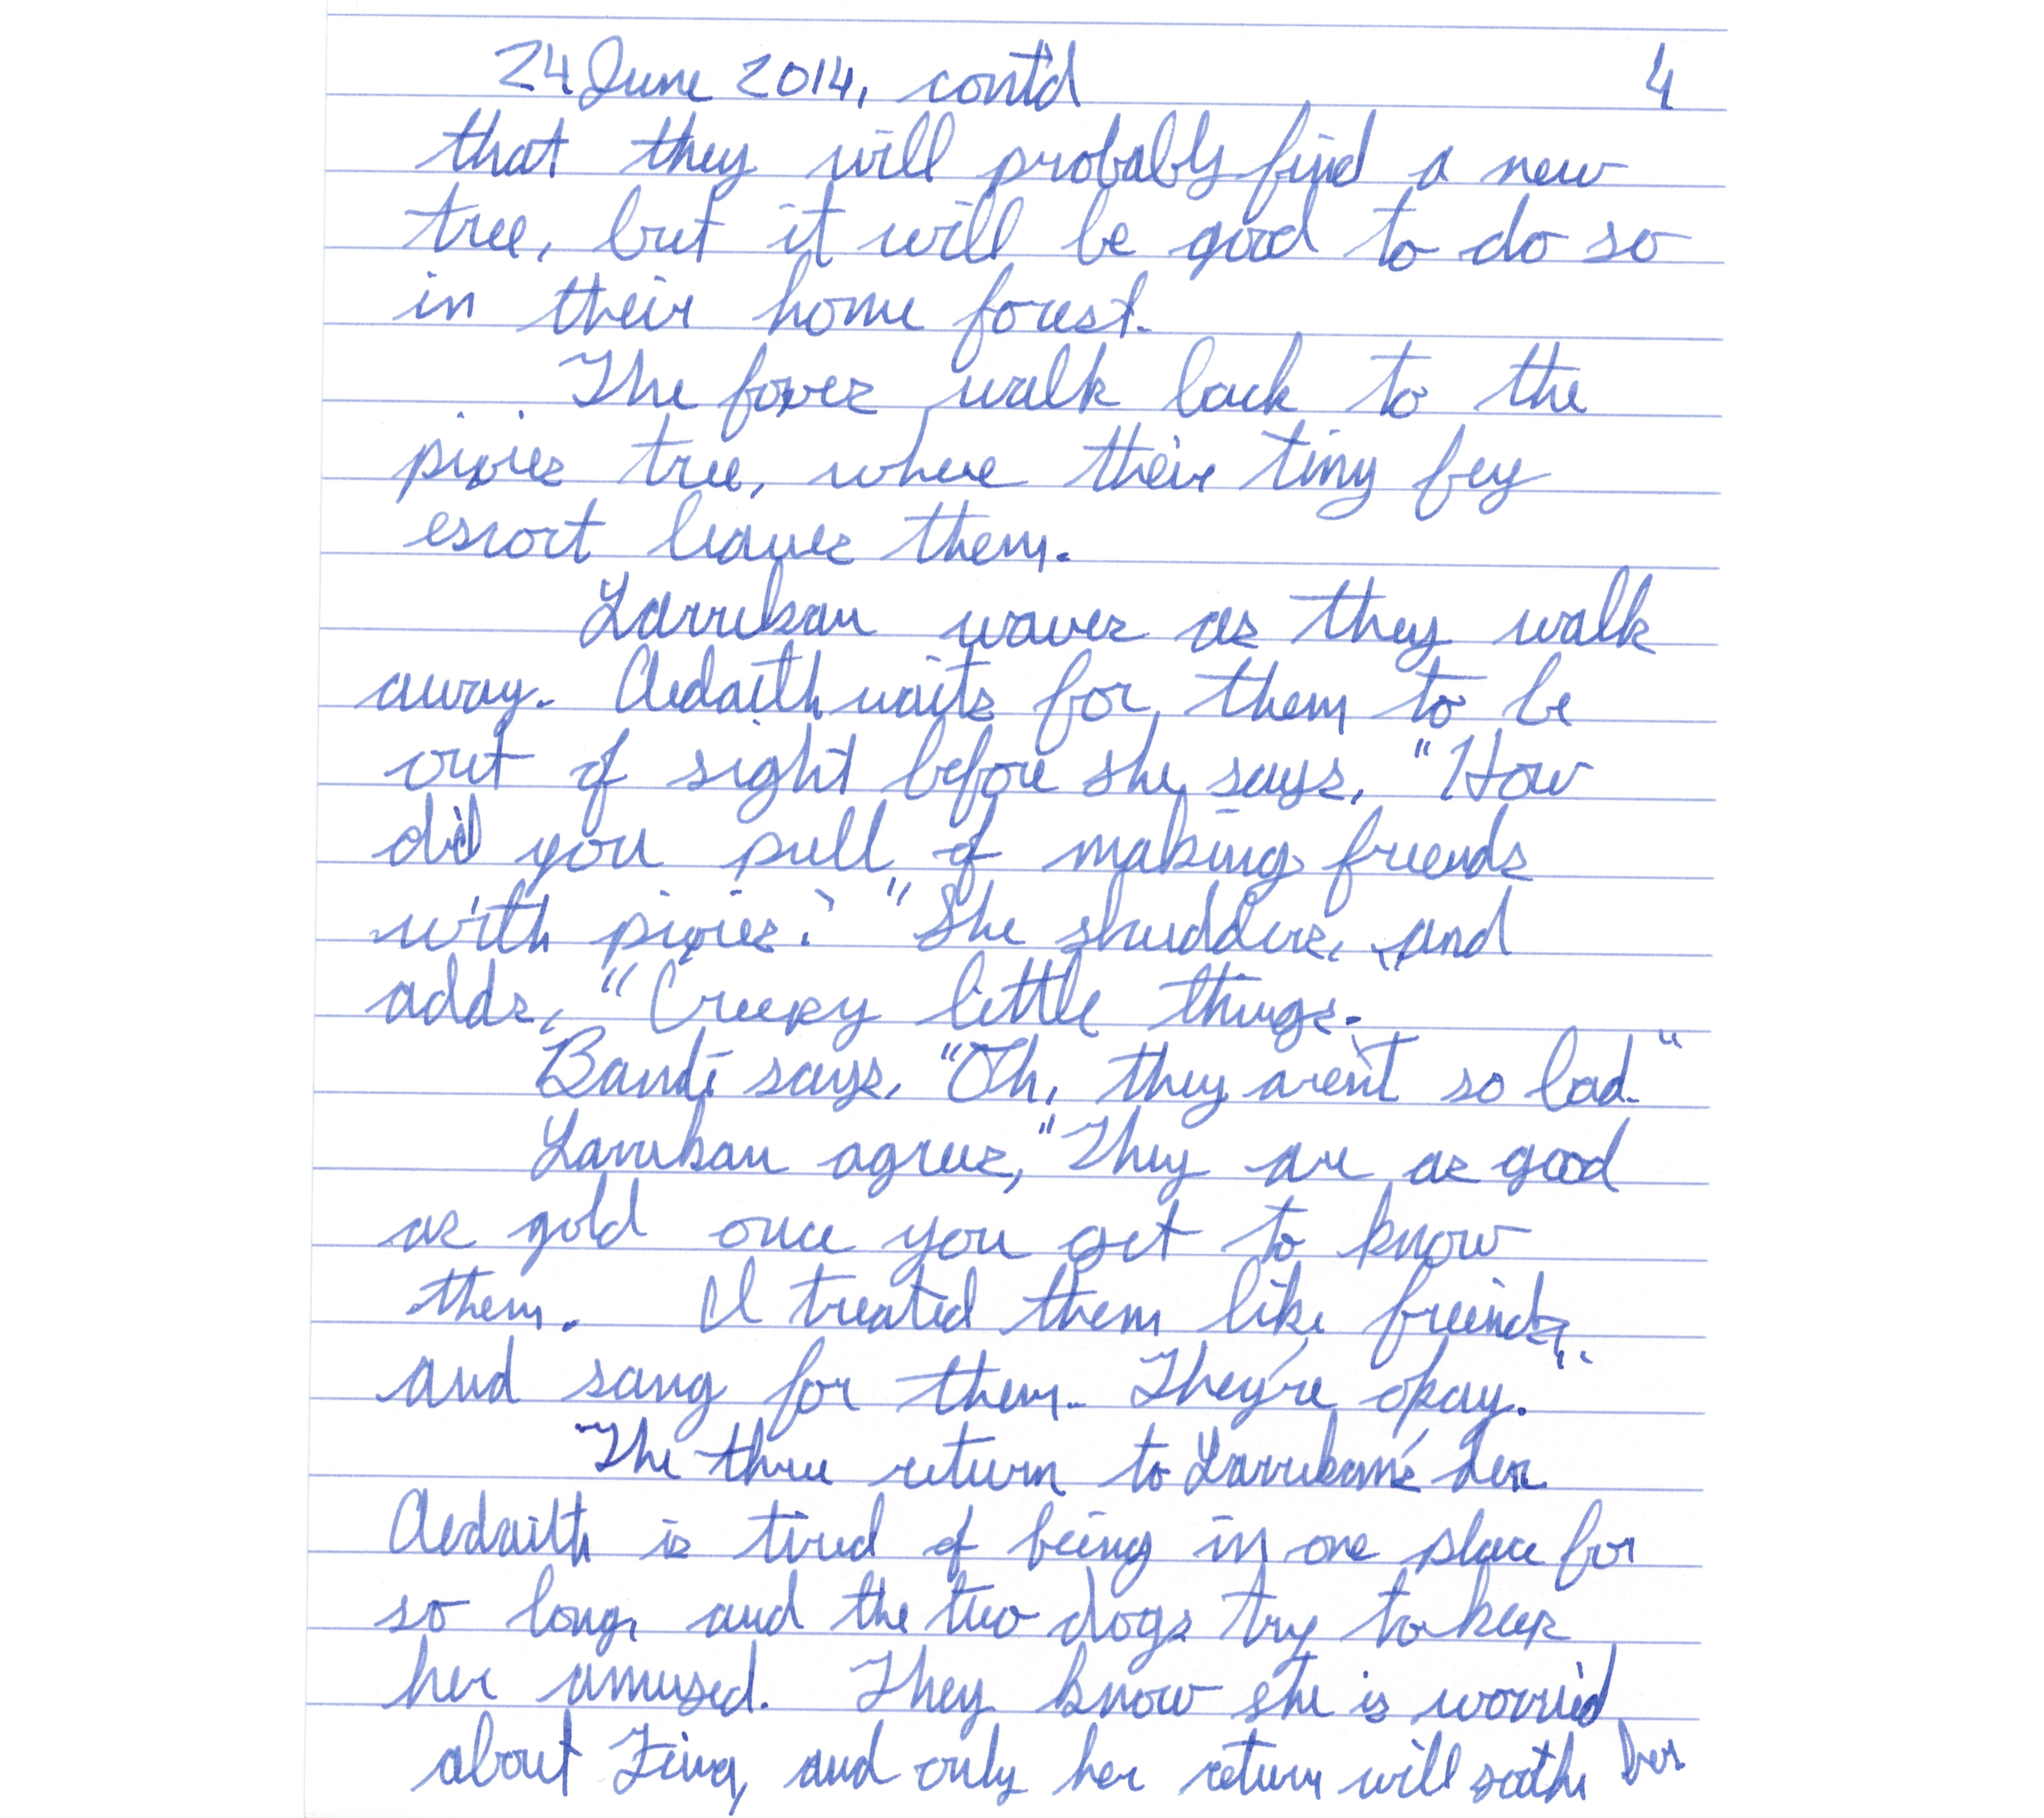 24 June 2014, cont'd 4
that they will probably find a new
tree, but it will be good to do so
in their home forest.
The foxes walk back to the
pixies tree, where their tiny fey
escort leaves them.
Larrikan waves as they walk
away. Aedaith waits for them to be
out of sight before she says, "How
did you pull of making friends
with pixies?" She shudders, and
adds, "Creepy little things.
Bandi says, "Oh, they aren't so bad."
Larrikan agrees, "They are as good
as gold once you get to know
them. I treated them like friends,
and sang for them. They're okay."
The three return to Larrikan's den
Aedaith is tired of being in one place for
so long, and the two dogs try to keep
her amused. They know she is worried
about Fina, and only her return will soothe her